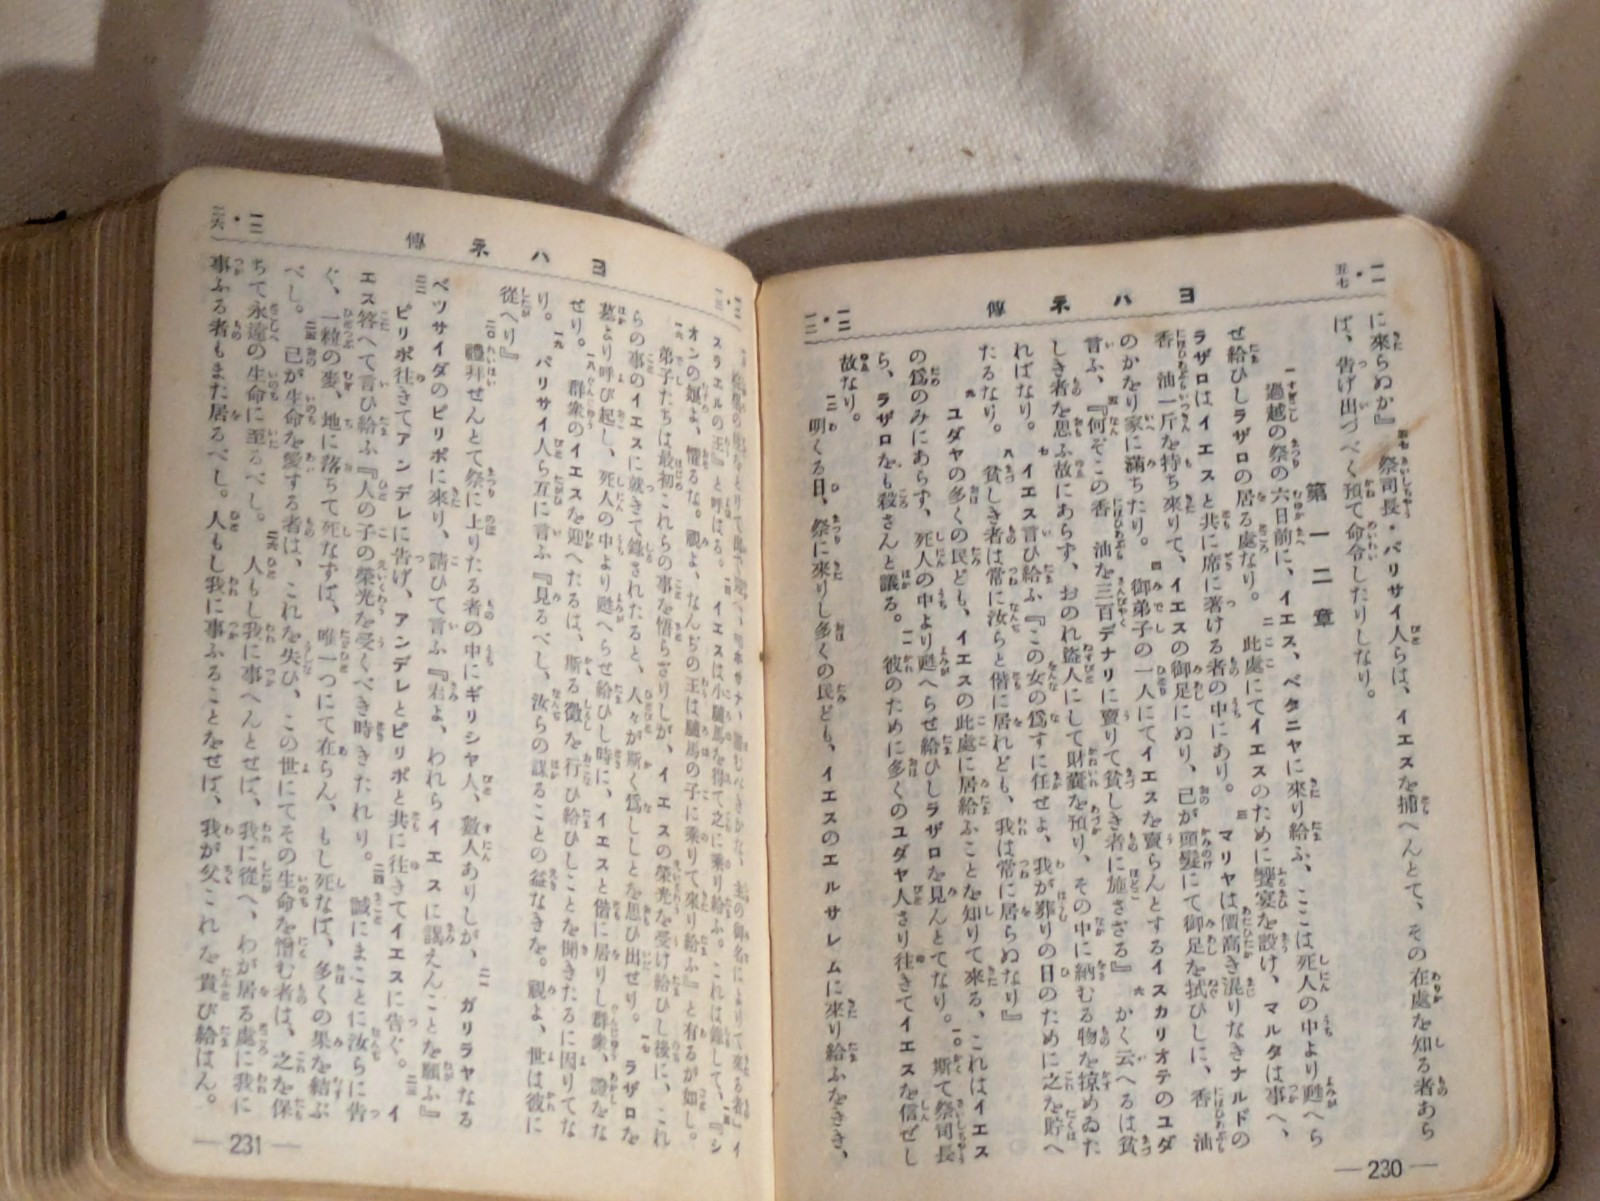 一一・五七
ヨハネ傳
に來らぬか』 五七 祭司長・パリサイ人らは、イエスを捕へんとて、その在處を知る者あら
ば、告げ出づべく預て命令したりしなり。
第一二章
一 過越の祭の六日前に、イエス、ベタニヤに來り給ふ、ここは死人の中より甦へら
せ給ひしラザロの居る處なり。 二 此處にてイエスのために饗宴を設け、マルタは事へ、
ラザロはイエスと共に席に著ける者の中にあり。 三 マリヤは價高き混りなきナルドの
香油一斤を持ち來りて、イエスの御足にぬり、己が頭髮にて御足を拭ひしに、香油
のかをり家に滿ちたり。 四 御弟子の一人にてイエスを賣らんとするイスカリオテのユダ
言ふ、 五 『何ぞこの香油を三百デナリに賣りて貧しき者に施さざる』 六 かく云へるは貧
しき者を思ふ故にあらず、おのれ盜人にして財囊を預り、その中に納むる物を掠めゐた
ればなり。 七 イエス言ひ給ふ『この女の爲すに任せよ、我が葬りの日のために之を貯へ
たるなり。 八 貧しき者は常に汝らと偕に居れども、我は常に居らぬなり』
九 ユダヤの多くの民ども、イエスの此處に居給ふことを知りて來る、これはイエス
の爲のみにあらず、死人の中より甦へらせ給ひしラザロを見んとてなり。 一〇 斯て祭司長
ら、ラザロをも殺さんと議る。 一一 彼のために多くのユダヤ人さり往きてイエスを信ぜし
故なり。
一二 明くる日、祭に來りし多くの民ども、イエスのエルサレムに來り給ふをきき、
一二・一二
―230―
ヨハネ傳
一二・一三
より來る者』イ
スラエルの王』と呼はる。 一四 イエスは小驢馬を得て之に乘り給ふ。これは錄して、 一五 『シ
オンの娘よ、懼るな。視よ、なんぢの王は驢馬の子に乘りて來り給ふ』と有るが如し。
一六 弟子たちは最初これらの事を悟らざりしが、イエスの榮光を受け給ひし後に、これ
らの事のイエスに就きて錄されたると、人々が斯く爲ししとを思ひ出せり。 一七 ラザロを
墓より呼び起し、死人の中より甦へらせ給ひし時に、イエスと偕に居りし群衆、證をな
せり。 一八 群衆のイエスを迎へたるは、斯る徵を行ひ給ひしことを聞きたるに因りてな
り。 一九 パリサイ人ら互に言ふ『見るべし、汝らの謀ることの益なきを。視よ、世は彼に
從へり』
二〇 禮拜せんとて祭に上りたる者の中にギリシヤ人、數人ありしが、 二一 ガリラヤなる
ベツサイダのピリポに來り、請ひて言ふ『君よ、われらイエスに謁えんことを願ふ』
二二 ピリポ往きてアンデレに告げ、アンデレとピリポと共に往きてイエスに告ぐ。 二三 イ
エス答へて言ひ給ふ『人の子の榮光を受くべき時きたれり。 二四 誠にまことに汝らに告
ぐ、一粒の麥、地に落ちて死なずば、唯一つにて在らん、もし死なば、多くの果を結ぶ
べし。 二五 己が生命を愛する者は、これを失ひ、この世にてその生命を憎む者は、之を保
ちて永遠の生命に至るべし。 二六 人もし我に事へんとせば、我に從へ、わが居る處に我に
事ふる者もまた居るべし。人もし我に事ふることをせば、我が父これを貴び給はん。
一二・二六
―231―